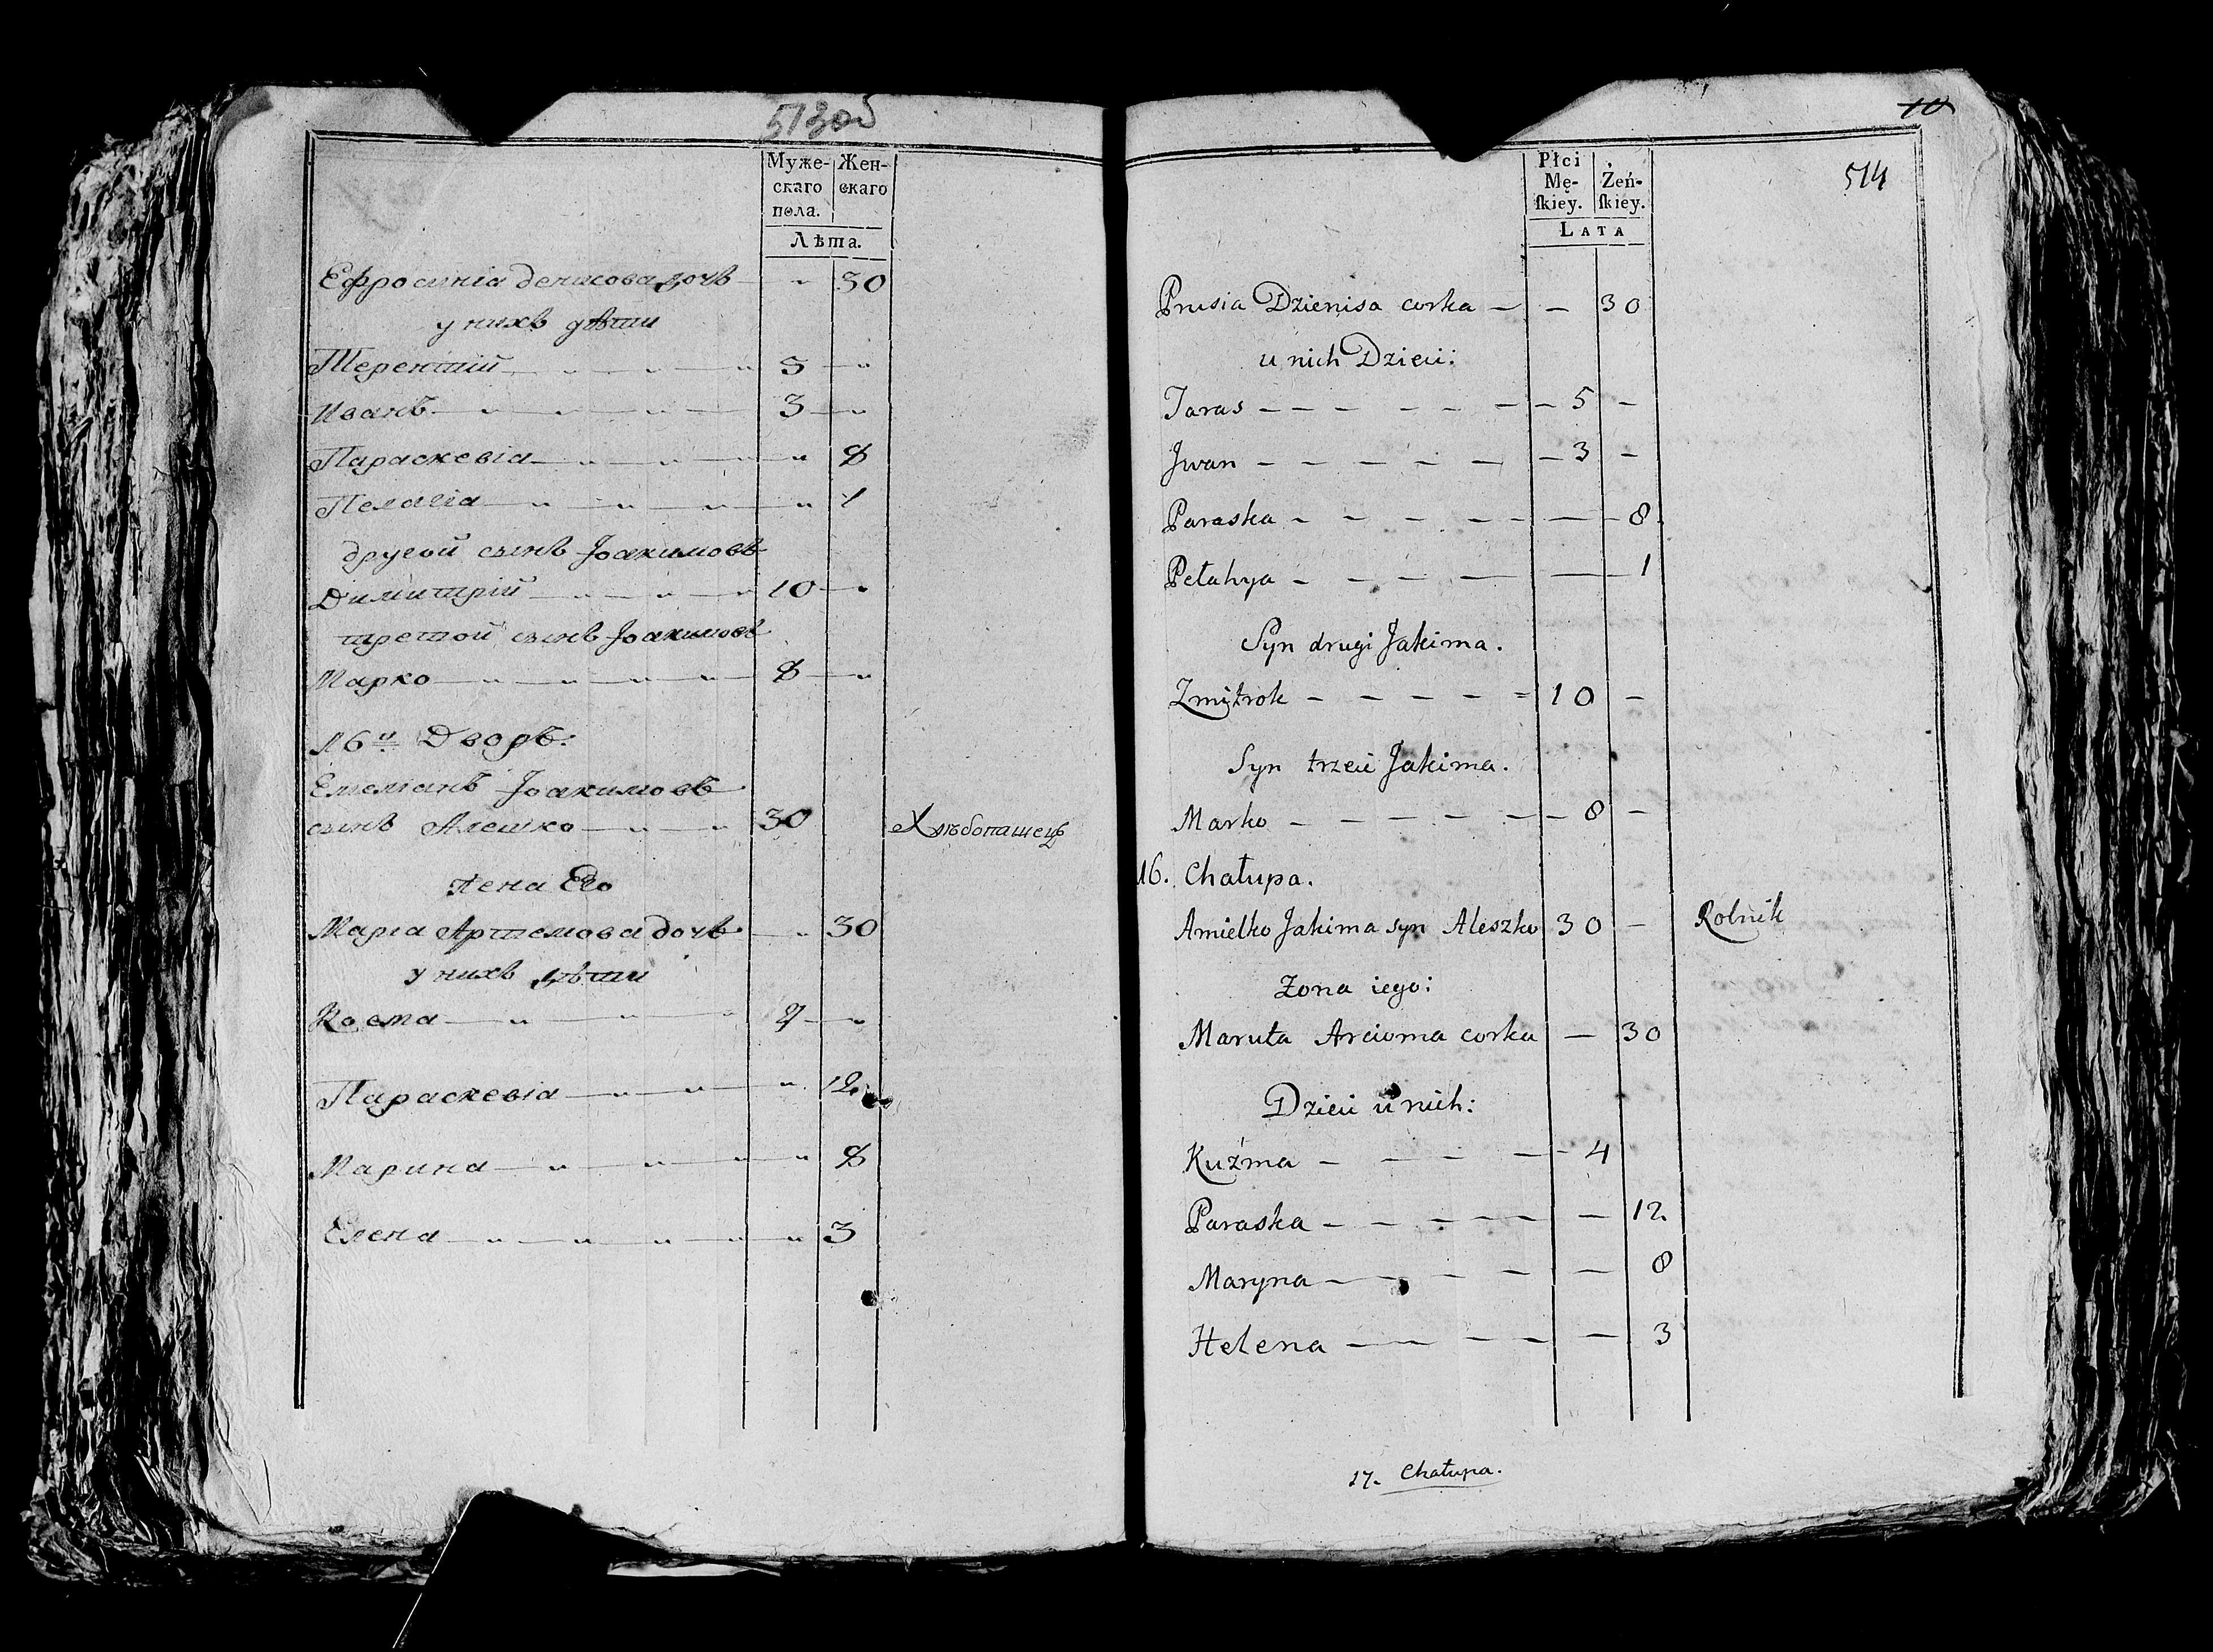 513об
Муже-
скаго
пола.
Жен-
скаго
Лѣта.
Ефросинія денисова дочь — „ 30
у нихъ дѣти
Терентій — „ — „ — „ 5 — „
Иванъ — „ — „ — „ — 3 — „
Параскевіа — „ — „ — „ 8
Пелагіа — „ — „ — „ — „ 1
другой сынъ Іоакимовъ
Димитрій — „ — „ — „ 10 — „
третой сынъ Іоакимовъ
Марко — „ — „ — „ — „ — 8 — „
16й Дворъ:
Емеліанъ Іоакимовъ
сынъ Алешко — „ — „ 30 Хлѣбопашецъ
Жена Его
Маріа Артемова дочь — „ 30
у нихъ дѣти
Косма — „ — „ — 4 — „
Параскевіа — „ — „ — „ 12
Марина — „ — „ — „ — „ 8
Елена — „ — „ — „ — „ 3
10
514
Płci
Mę-
ſkiey.
Żeń-
ſkiey.
LATA
Prusia Dzienisa corka — — 30
u nich Dzieci:
Taras — — — — — — — 5 —
Jwan — — — — — — 3 —
Paraska — — — — — — — 8.
Pełahya — — — — — — 1
Syn drugi Jakima.
Zmitrok — — — — — 10 —
Syn trzeci Jakima.
Marko — — — — — — 8 —
16. Chałupa.
Amielko Jakima syn Aleszko 30 — Rolnik
Zona iego:
Maruta Arcioma corka — 30
Dzieci u nich:
Kuźma — — — — — 4
Paraska — — — — — — 12.
Maryna — — — — — 8
Helena — — — — — 3
17. Chałupa.